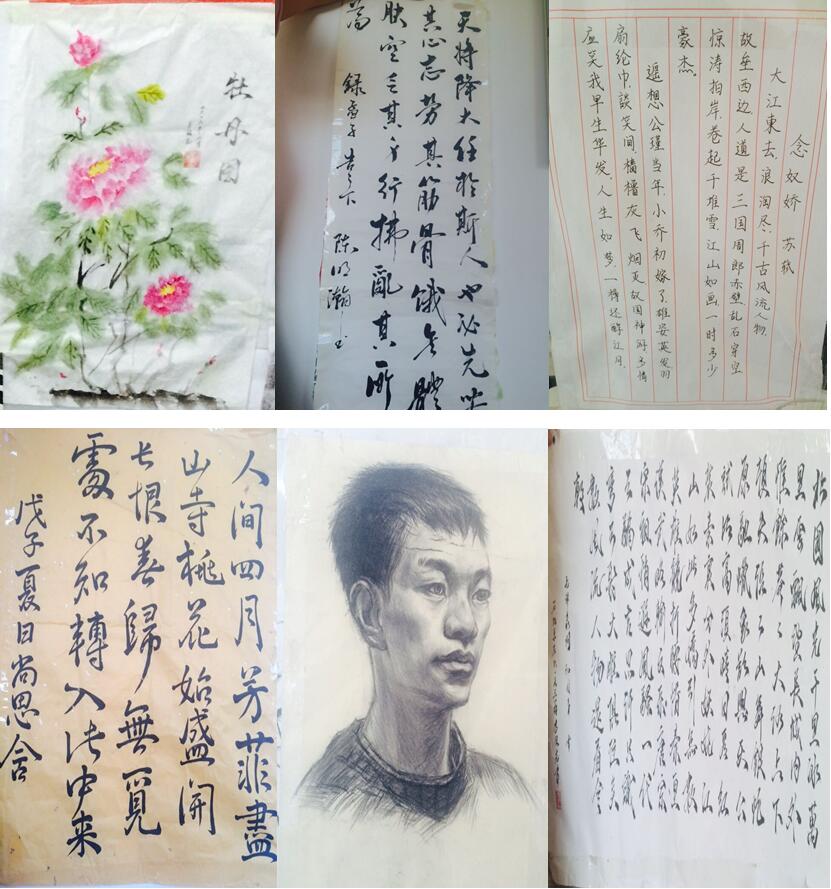 牡丹图
天将降大任於斯人也必先苦
其心志劳其筋骨饿其體
肤空乏其身行拂亂其所
為
錄孟子告子下 陈明瀚书
念奴娇 苏轼
大江東去,浪淘尽,千古风流人物.
故垒西边,人道是三国周郎赤壁乱石穿空
惊涛拍岸,卷起千堆雪.江山如画一时多少
豪杰。
遥想公瑾当年,小乔初嫁了雄姿英发羽
扇纶巾,談笑间,樯橹灰飞烟灭故国神游多情
应笑我早生华发,人生如梦,一樽还酹江月.
人间四月芳菲盡
山寺桃花始盛開
長恨春歸無覓
處不知轉入此中来
戊子夏日尚思舍
北國風光千里冰萬
里雪飄望長城内外
惟餘莽莽大河上下
頓失滔滔山舞銀蛇
原馳蠟象欲與天公
試比高須晴日看紅
裝素裹分外妖嬈江
山如此多嬌引無數
英雄競折腰惜秦皇
漢武略輸文采唐宗
宋祖稍遜風騷一代
天驕成吉思汗只識
彎弓射大雕俱往矣
數風流人物還看今
朝